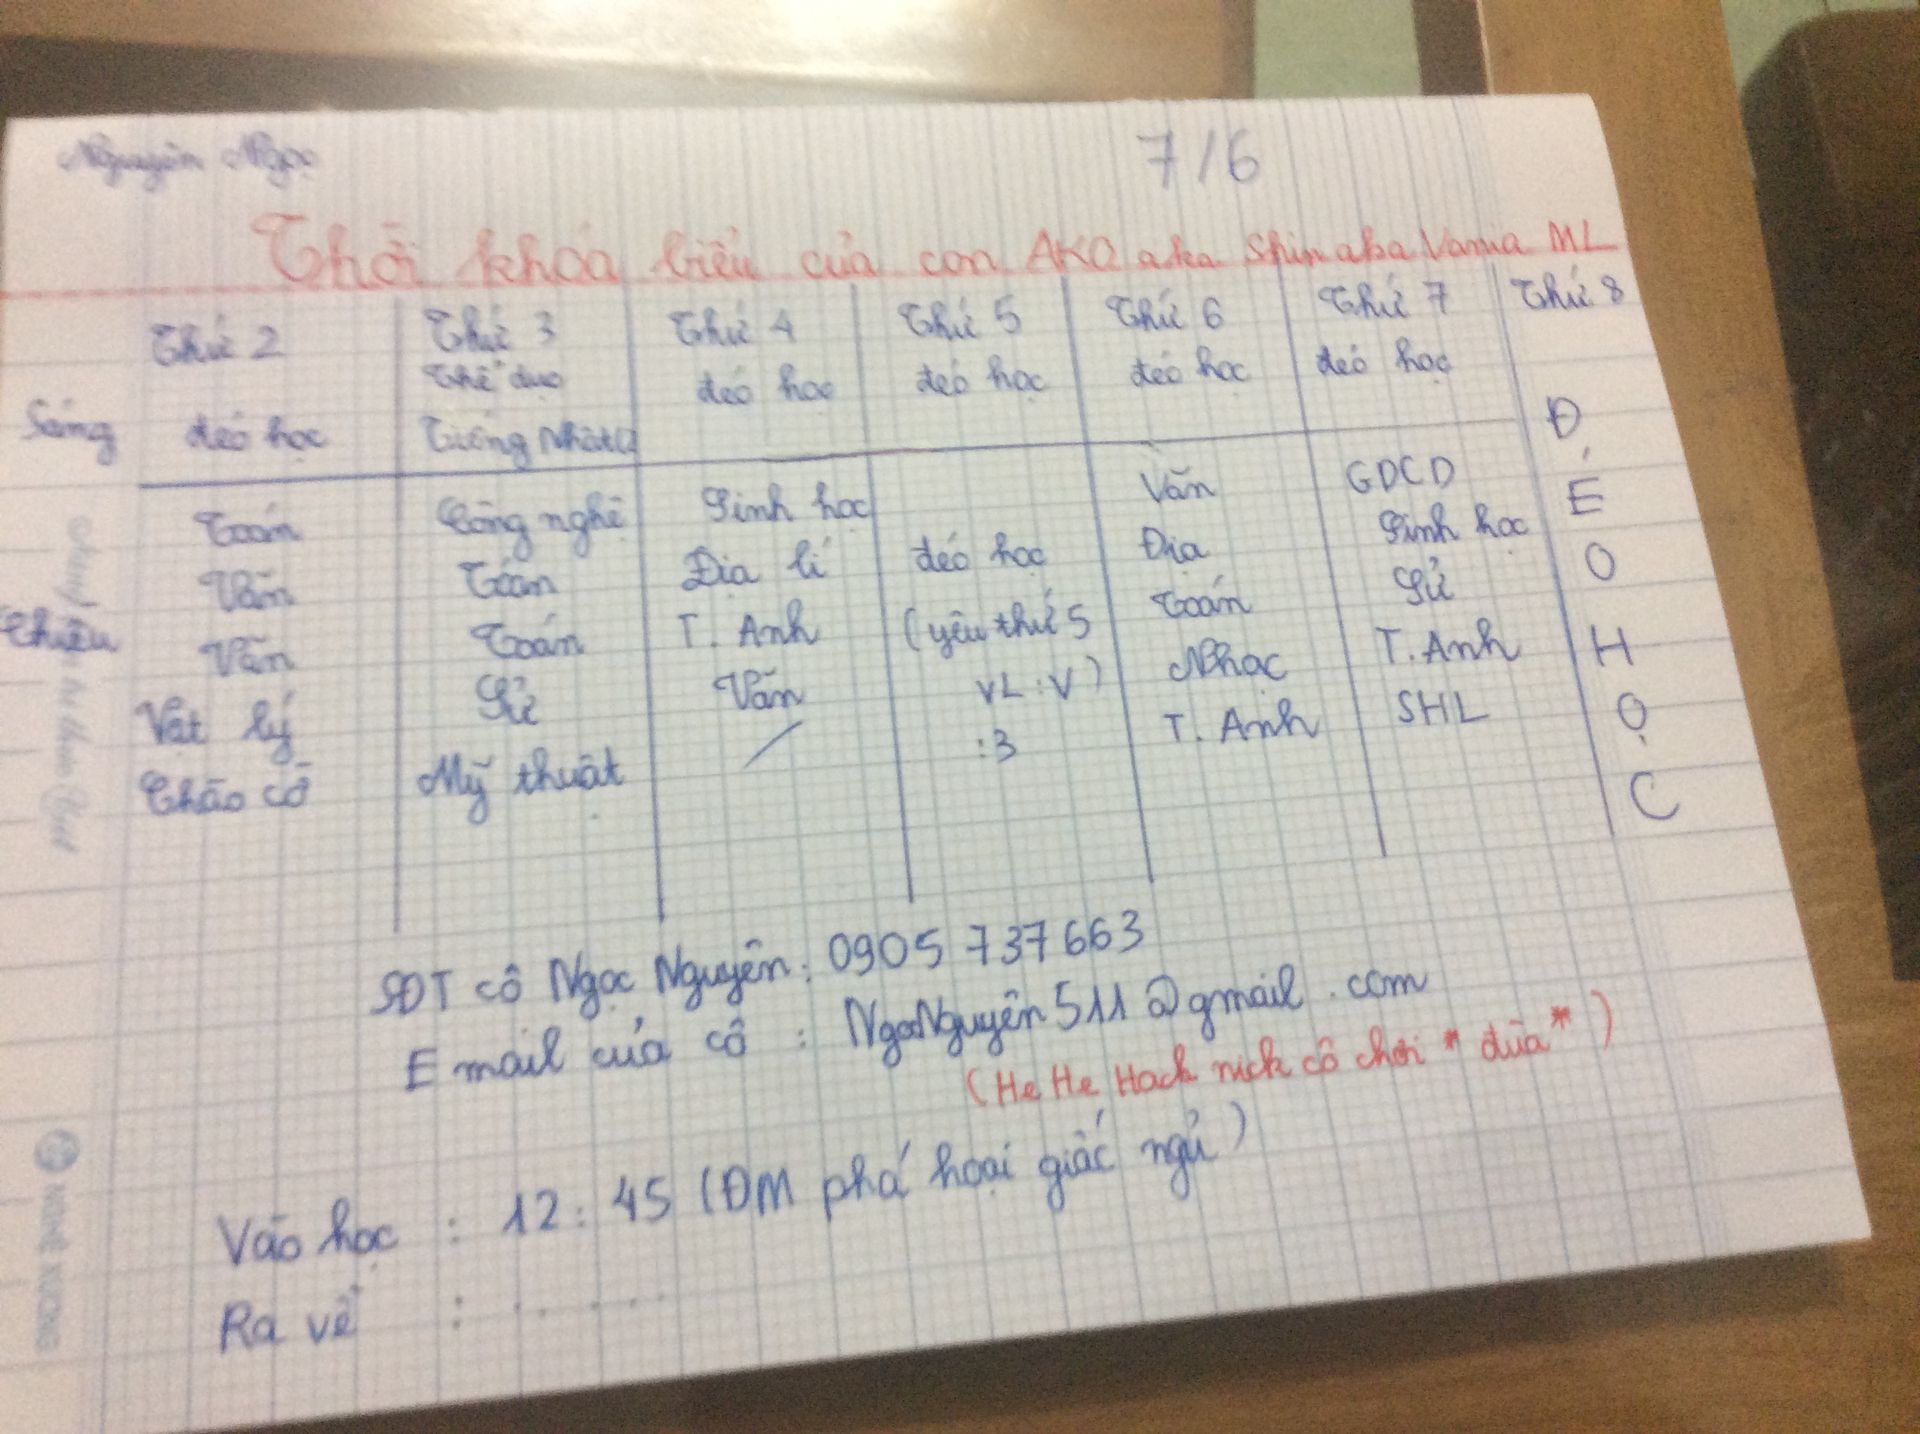 Nguyên Ngọc
7/6
Thời khóa biểu của con AKO aka Shin aba Vania ML
Thứ 2 Thứ 3 Thứ 4 Thứ 5 Thứ 6 Thứ 7 Thứ 8
Thể dục đéo học đéo học đéo học đéo học
Sáng đéo học Tiếng Nhật
Toán Công nghệ Sinh học Văn GDCD
Văn Toán Địa lí đéo học Địa Sinh học
Chiều Văn Toán T. Anh (yêu thứ 5 Toán Sử
Vật lý Sử Văn VL :V) Nhạc T. Anh
Chào cờ Mỹ thuật / :3 T. Anh SHL
Đ
É
O
H
Ọ
C
SĐT cô Ngọc Nguyên: 0905 737 663
Email của cô : NgocNguyên511@gmail.com
(He He Hack nick cô chơi *đùa*)
Vào học : 12: 45 (ĐM phá hoại giấc ngủ)
Ra về : . . . . . .